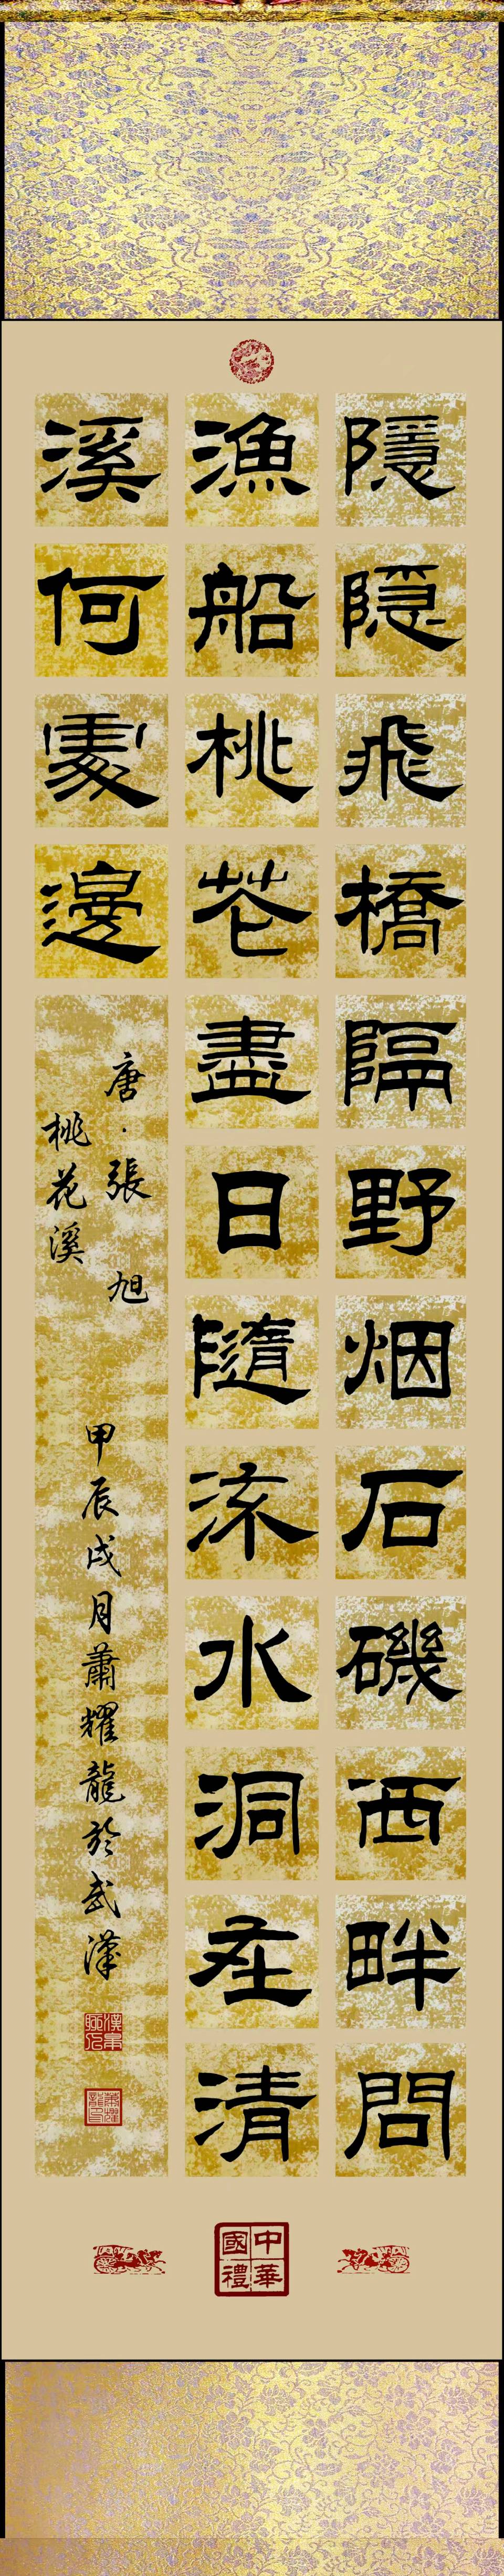 隱隐飛橋隔野烟石磯西畔問
漁船桃花盡日隨流水洞在清
溪何處邊
唐·張旭
桃花溪
甲辰戌月蕭耀龍於武漢
蕭耀龍印
中華國禮